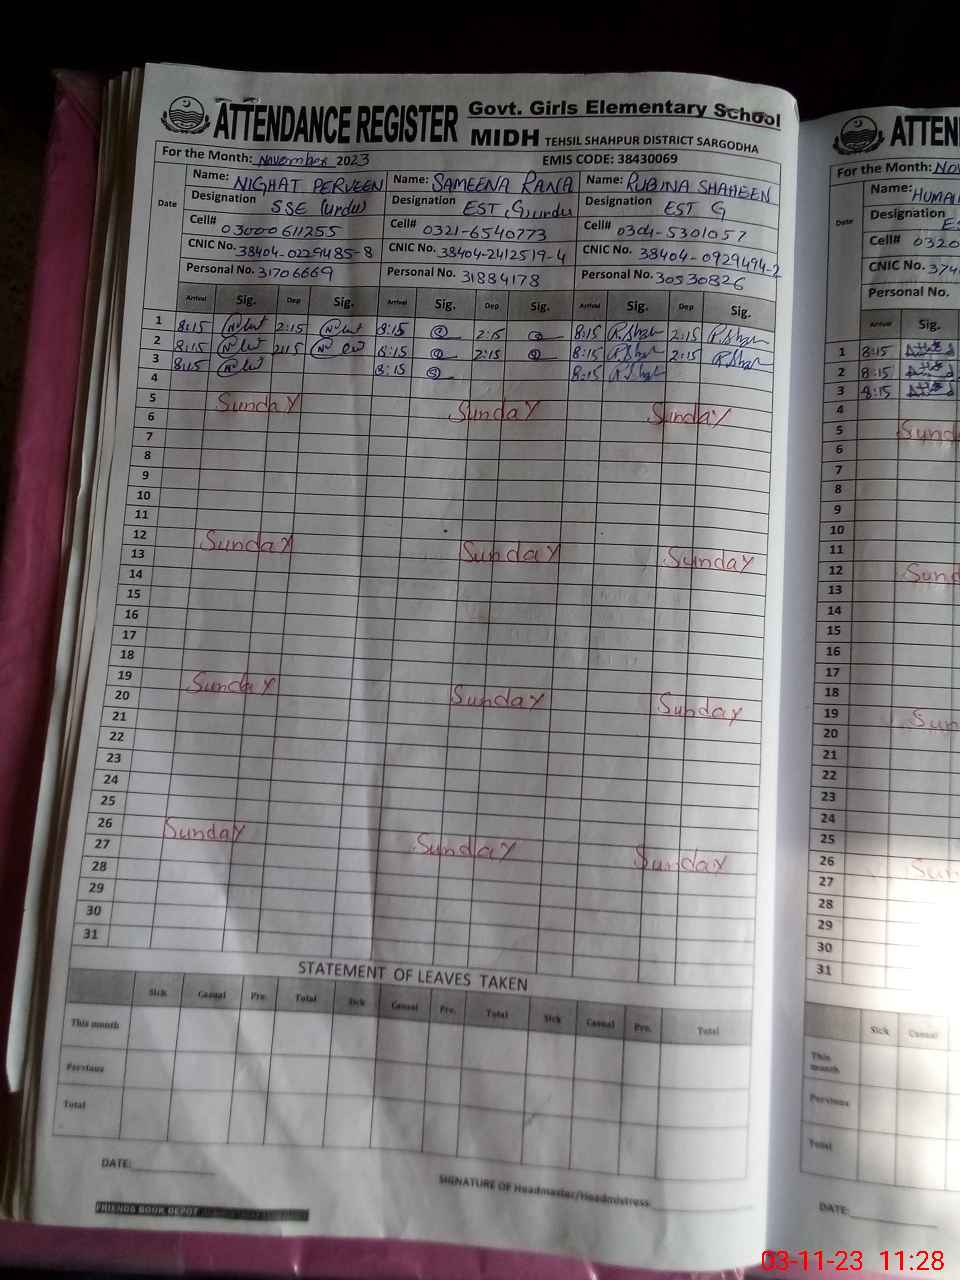 ATTENDANCE REGISTER Govt. Girls Elementary School
MIDH TEHSIL SHAHPUR DISTRICT SARGODHA
For the Month: November 2023 EMIS CODE: 38430069
Date Name: NIGHAT PERVEEN Name: SAMEENA RANA Name: RUBINA SHAHEEN
Designation SSE (urdu) Designation EST (G) urdu Designation EST G
Cell# 03000611255 Cell# 0321-6540773 Cell# 0304-5301057
CNIC No. 38404-0229485-8 CNIC No. 38404-2412519-4 CNIC No. 38404-0929494-2
Personal No. 31706669 Personal No. 31884178 Personal No. 30530826
Arrival Sig. Dep Sig. Arrival Sig. Dep Sig. Arrival Sig. Dep Sig.
1 8:15 2:15 8:15 2:15 8:15 2:15
2 8:15 2:15 8:15 2:15 8:15 2:15
3 8:15 8:15 8:15
4
5 Sunday Sunday Sunday
6
7
8
9
10
11
12 Sunday Sunday Sunday
13
14
15
16
17
18
19 Sunday Sunday Sunday
20
21
22
23
24
25
26 Sunday Sunday Sunday
27
28
29
30
31
STATEMENT OF LEAVES TAKEN
Sick Casual Pre. Total Sick Casual Pre. Total Sick Casual Pre. Total
This month
Previous
Total
DATE:
SIGNATURE OF Headmaster/Headmistress
FRIENDS BOOK DEPOT
ATTEN
For the Month: Nov
Date Name: HUMAI
Designation ES
Cell# 0320
CNIC No. 374
Personal No.
Arrival Sig.
1 8:15
2 8:15
3 8:15
4
5 Sund
6
7
8
9
10
11
12 Sund
13
14
15
16
17
18
19 Sun
20
21
22
23
24
25
26 Sun
27
28
29
30
31
Sick Casual
This month
Previous
Total
DATE:
03-11-23 11:28